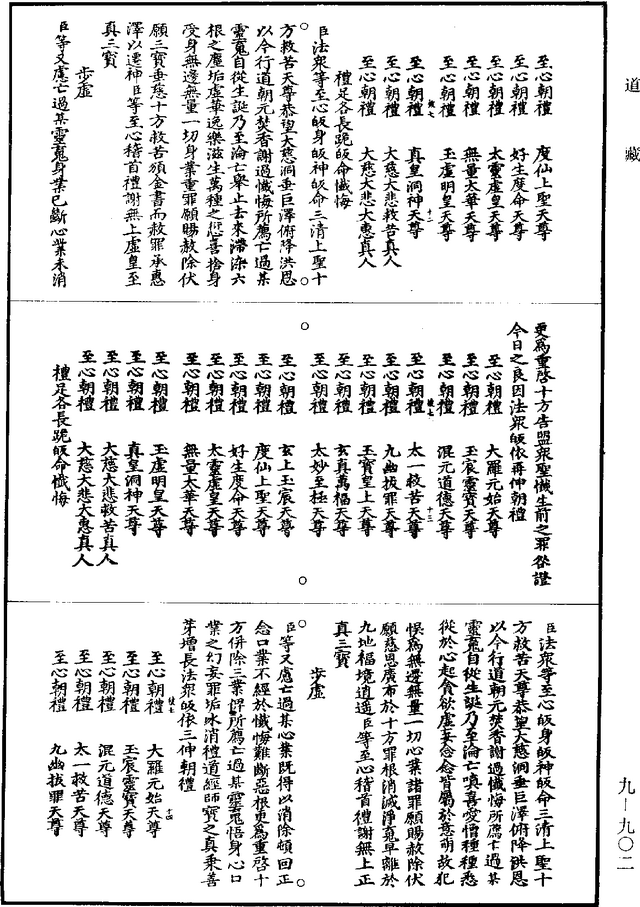 道藏
至心朝禮　度仙上聖天尊
至心朝禮　好生度命天尊
至心朝禮　太靈虛皇天尊
至心朝禮　無量太華天尊
至心朝禮　玉虛明皇天尊
至心朝禮　真皇洞神天尊
至心朝禮　大慈大悲救苦真人
至心朝禮　大慈大悲大惠真人
禮足各長跪皈命懺悔
臣法眾等至心皈身皈神皈命三清上聖十
方救苦天尊恭望大慈洞垂巨澤俯降洪恩
以今行道朝元焚香謝過懺悔所薦亡過某
靈魂自從生誕乃至淪亡舉止去來滯染六
根之塵垢虛華逸樂滋生萬種之愆喜捨身
受身無邊無量一切身業重罪願賜赦除伏
願三寶垂慈十方救苦頒金書而赦罪承惠
澤以遷神臣等至心稽首禮謝無上虛皇至
真三寶
步虛
臣等又慮亡過某靈魂身業已斷心業未消
更為重啓十方告盟眾聖懺生前之罪咎證
今日之良因法眾皈依再伸朝禮
至心朝禮　大羅元始天尊
至心朝禮　玉宸靈寶天尊
至心朝禮　混元道德天尊
至心朝禮　太一救苦天尊
至心朝禮　九幽拔罪天尊
至心朝禮　玉寶皇上天尊
至心朝禮　玄真萬福天尊
至心朝禮　太妙至極天尊
至心朝禮　玄上玉宸天尊
至心朝禮　度仙上聖天尊
至心朝禮　好生度命天尊
至心朝禮　太靈虛皇天尊
至心朝禮　無量太華天尊
至心朝禮　玉虛明皇天尊
至心朝禮　真皇洞神天尊
至心朝禮　大慈大悲救苦真人
至心朝禮　大慈大悲大惠真人
禮足各長跪皈命懺悔
臣法眾等至心皈身皈神皈命三清上聖十
方救苦天尊恭望大慈洞垂巨澤俯降洪恩
以今行道朝元焚香謝過懺悔所薦亡過某
靈魂自從生誕乃至淪亡嗔喜愛憎種種悉
從於心起貪欲虛妄念念皆屬於意萌故犯
悞為無邊無量一切心業諸罪願賜赦除伏
願慈恩廣布於十方罪根消滅淨魂早離於
九地福境逍遥臣等至心稽首禮謝無上正
真三寶
步虛
臣等又慮亡過某心業既得以消除頓回正
念口業不經於懺悔難斷惡根更為重啓十
方併除三業俾所薦亡過某靈魂悟身心口
業之幻妄罪垢冰消禮道經師寶之真乘善
芽增長法眾皈依三伸朝禮
至心朝禮　大羅元始天尊
至心朝禮　玉宸靈寶天尊
至心朝禮　混元道德天尊
至心朝禮　太一救苦天尊
至心朝禮　九幽拔罪天尊
九—九〇二